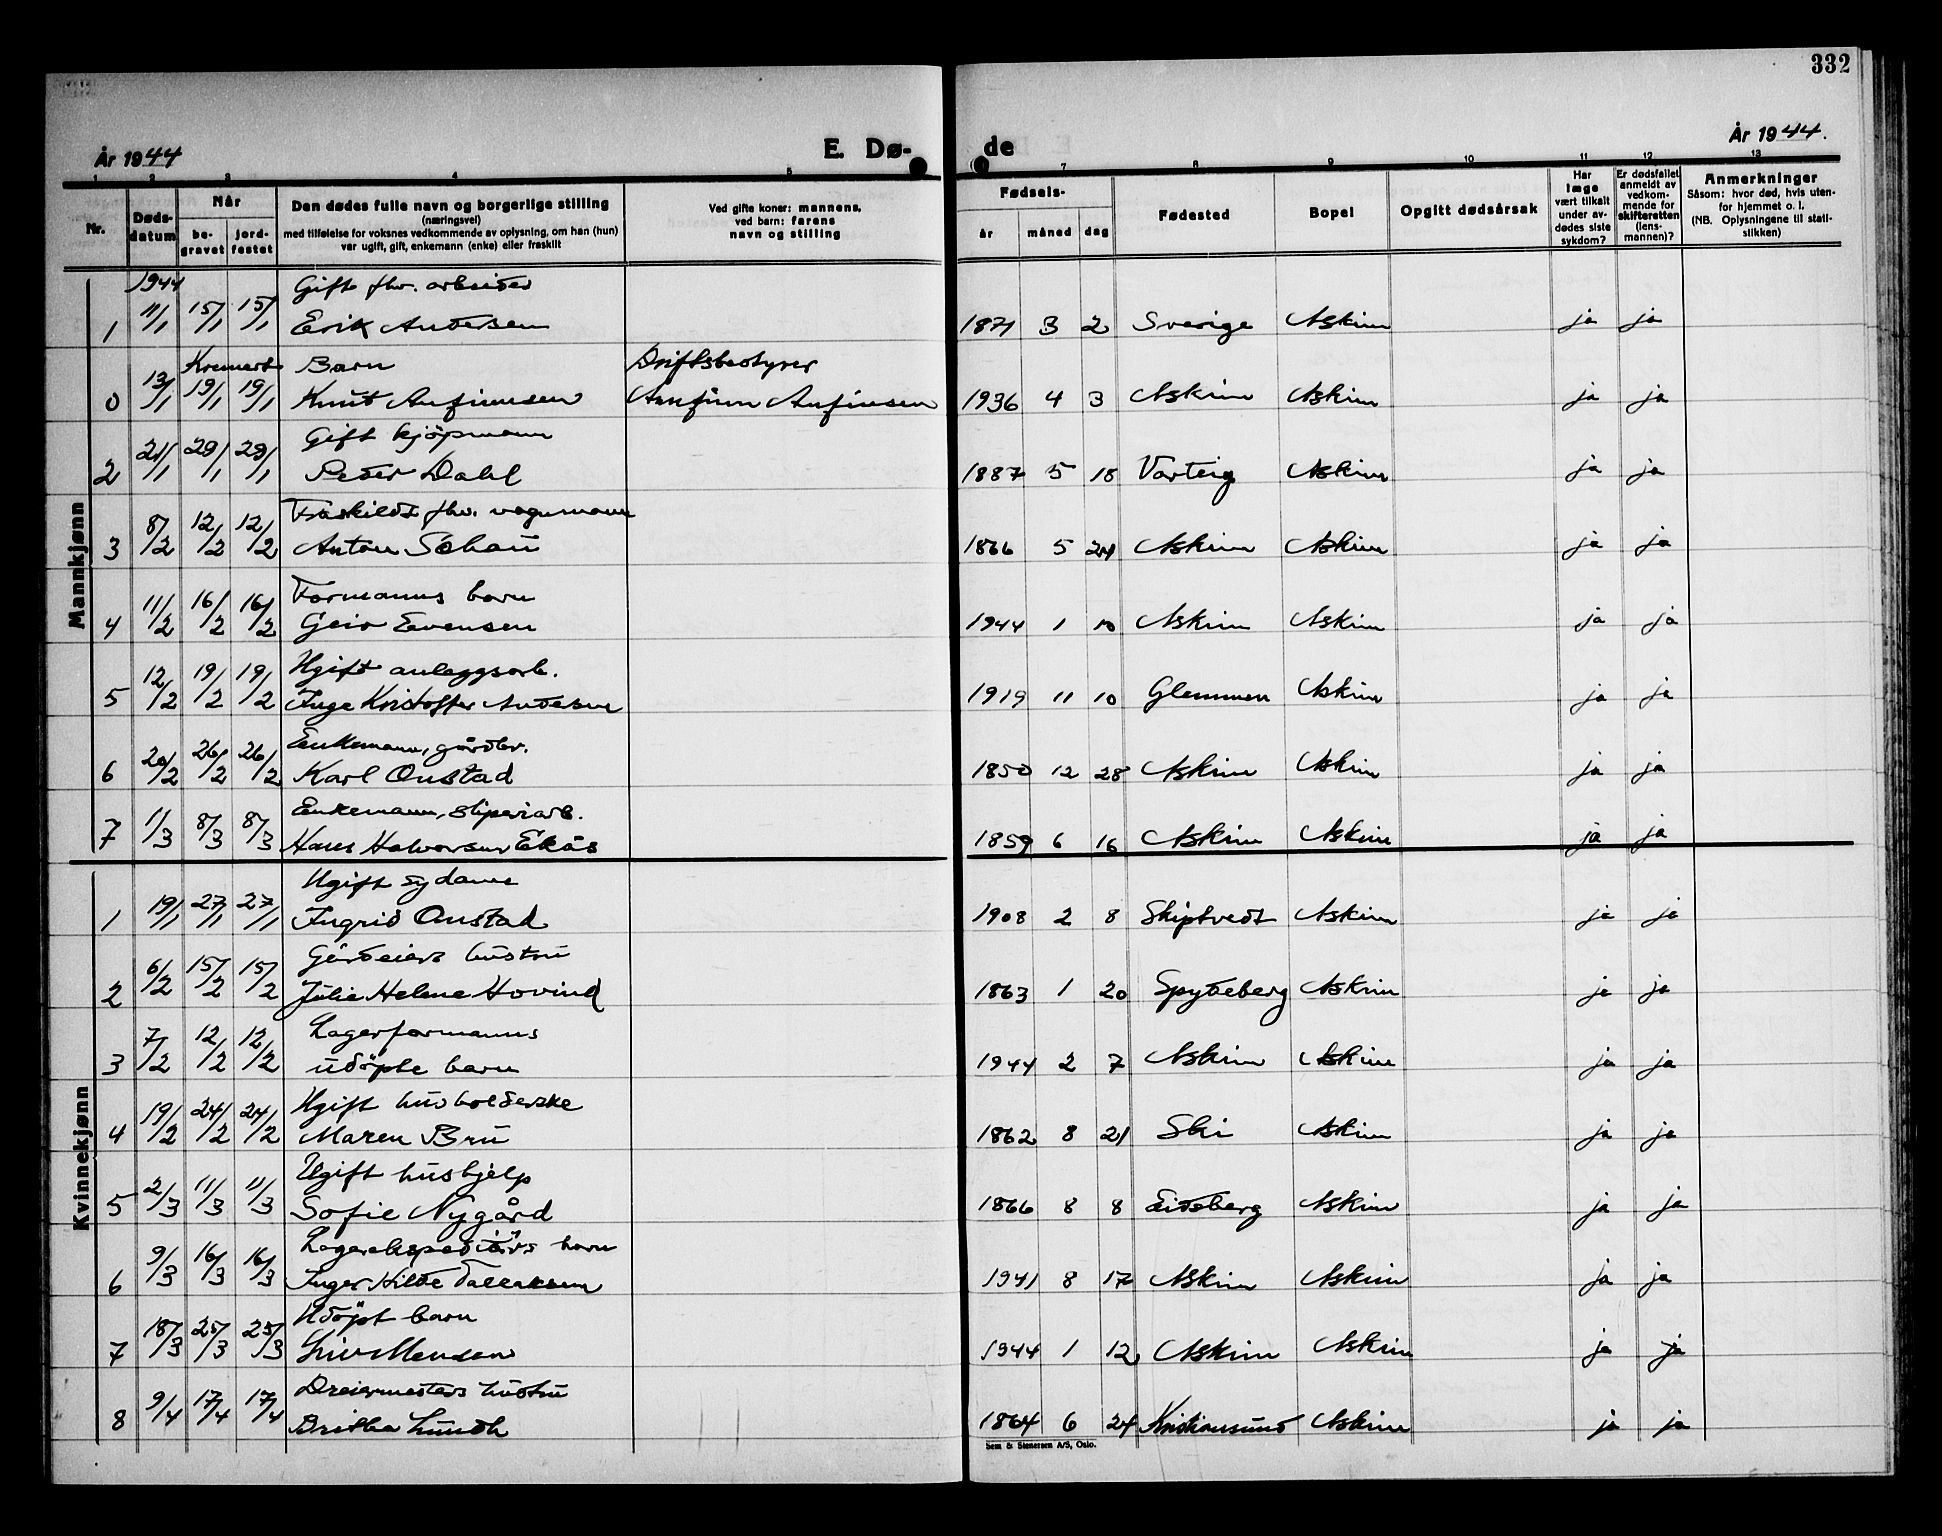 332
År 1944
E. Dø-
de
År 1944.
1 2 3 4 5 7 8 9 10 11 12 13
Nr.
Døds-
datum
Når
be-
gravet
jord-
festet
Den dødes fulle navn og borgerlige stilling
(næringsvei)
med tilføielse for voksnes vedkommende av oplysning, om han (hun)
var ugift, gift, enkemann (enke) eller fraskilt
Ved gifte koner: mannens,
ved barn: farens
navn og stilling
Fødsels-
år måned dag
Fødested
Bopel
Opgitt dødsårsak
Har
læge
vært tilkalt
under av-
dødes siste
sykdom?
Er dødsfallet
anmeldt av
vedkom-
mende for
skifteretten
(lens-
mannen)?
Anmerkninger
Såsom: hvor død, hvis uten-
for hjemmet o. l.
(NB. Oplysningene til stati-
stikken)
Mannkjønn
1944 Gift fhv. arbeider
1 11/1 15/1 15/1 Erik Andersen 1871 3 2 Sverige Askim ja ja
Kremert Barn Driftsbestyrer
0 13/1 19/1 19/1 Knut Anfinnsen Annfinn Anfinsen 1936 4 3 Askim Askim ja ja
Gift kjöpmann
2 21/1 29/1 29/1 Peder Dahl 1887 5 18 Varteig Askim ja ja
Fraskildt fhv. vognmann
3 8/2 12/2 12/2 Anton Schau 1866 5 24 Askim Askim ja ja
Formanns barn
4 11/2 16/2 16/2 Geir Evensen 1944 1 10 Askim Askim ja ja
Ugift anleggsarb.
5 12/2 19/2 19/2 Inge Kristoffer Andersen 1919 11 10 Glemmen Askim ja ja
Enkemann, gårdbr.
6 20/2 26/2 26/2 Karl Onstad 1850 12 28 Askim Askim ja ja
Enkemann, sliperiarb.
7 1/3 8/3 8/3 Hans Halvorsen Ekås 1859 6 16 Askim Askim ja ja
Kvinnekjønn
Ugift sydame
1 19/1 27/1 27/1 Ingrid Onstad 1908 2 8 Skiptvedt Askim ja ja
Gårdeiers hustru
2 6/2 15/2 15/2 Julie Helene Hovind 1863 1 20 Spydeberg Askim ja ja
Lagerformanns
3 7/2 12/2 12/2 udöpte barn 1944 2 7 Askim Askim ja ja
Ugift husholderske
4 19/2 24/2 24/2 Maren Bru 1862 8 21 Ski Askim ja ja
Ugift hushjelp
5 2/3 11/3 11/3 Sofie Nygård 1866 8 8 Eidsberg Askim ja ja
Lagerekspeditörs barn
6 9/3 16/3 16/3 Inger Hilde Tallaksen 1941 8 17 Askim Askim ja ja
Udöpt barn
7 18/3 25/3 25/3 Liv Monsen 1944 1 12 Askim Askim ja ja
Dreiermesters hustru
8 9/4 17/4 17/4 Lundh 1864 6 24 Kristiansund Askim ja ja
Sem & Stenersen A/S, Oslo.